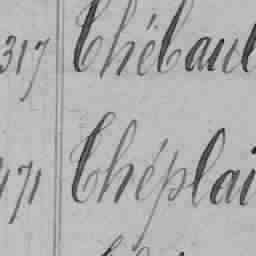 317 Thébaul
171 Théplai